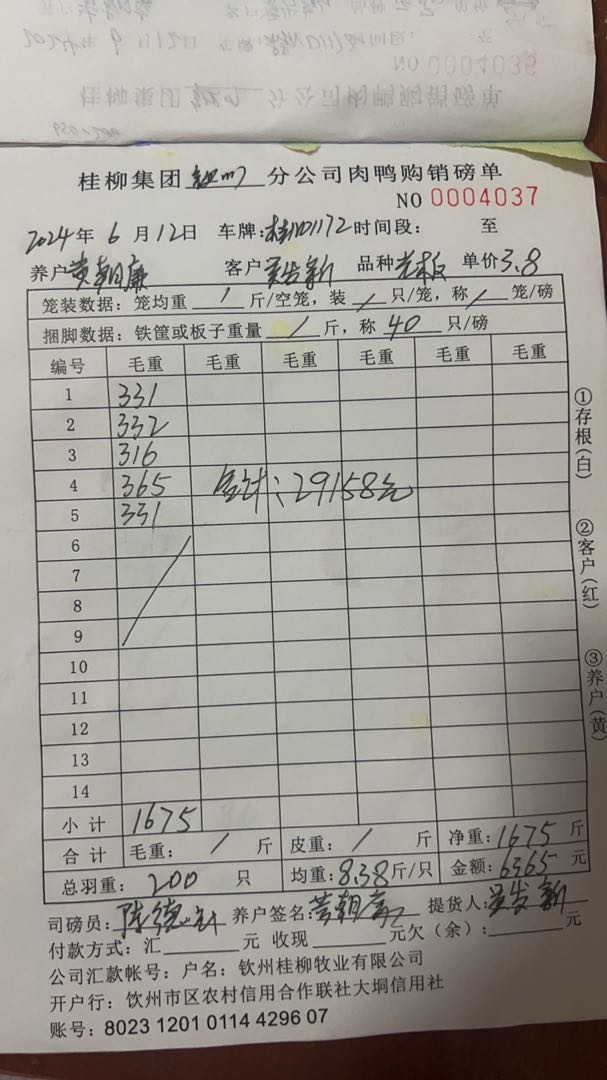 NO 0004036
桂柳集团 分公司肉鸭购销磅单
桂柳集团 钦州 分公司肉鸭购销磅单
NO 0004037
2024年 6月12日 车牌:桂 时间段: 至
养户 黄朝廉 客户 吴发新 品种 单价 3.8
笼装数据: 笼均重 / 斤/空笼, 装 / 只/笼, 称 / 笼/磅
捆脚数据: 铁筐或板子重量 / 斤, 称 40 只/磅
编号 毛重 毛重 毛重 毛重 毛重
1 331
2 332
3 316
4 365 合计:29158元
5 331
6
7
8
9
10
11
12
13
14
小计 1675
合计 毛重: / 斤 皮重: / 斤 净重: 1675 斤
总羽重: 200 只 均重: 8.38 斤/只 金额: 6365 元
司磅员: 陈德 养户签名: 黄朝廉 提货人: 吴发新
付款方式: 汇 元 收现 元欠(余): 元
公司汇款帐号: 户名: 钦州桂柳牧业有限公司
开户行: 饮州市区农村信用合作联社大垌信用社
账号: 8023 1201 0114 4296 07
①存根(白)
②客户(红)
③养户(黄)